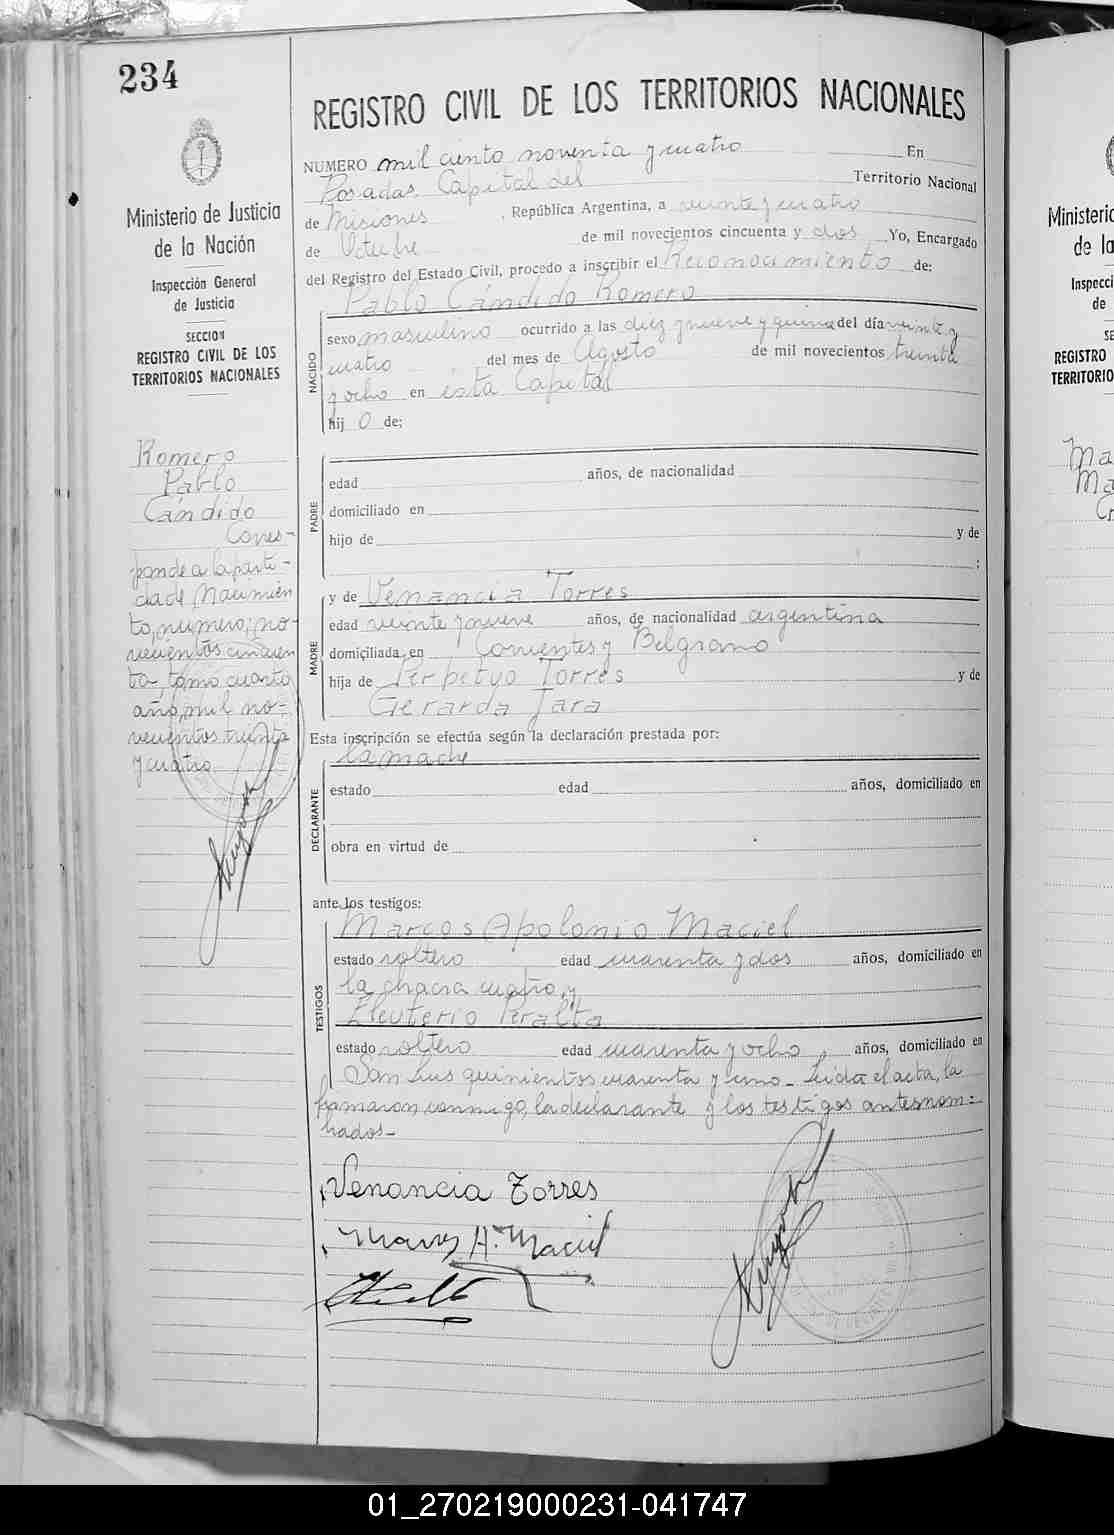 234
REGISTRO CIVIL DE LOS TERRITORIOS NACIONALES
NUMERO mil ciento noventa y cuatro En
Posadas Capital del Territorio Nacional
de Misiones, República Argentina, a veinte y cuatro
de Octubre de mil novecientos cincuenta y dos Yo, Encargado
del Registro del Estado Civil, procedo a inscribir el Reconocimiento de:
Pablo Cándido Romero
NACIDO
sexo masculino ocurrido a las diez y nueve y quince del día veinte y
cuatro del mes de Agosto de mil novecientos treinta
y ocho en esta Capital
hij o de:
PADRE
edad años, de nacionalidad
domiciliado en
hijo de y de
;
MADRE
y de Venancia Torres
edad veinte y nueve años, de nacionalidad argentina
domiciliada en Corrientes y Belgrano
hija de Perpetuo Torres y de
Gerarda Jara
Esta inscripción se efectúa según la declaración prestada por:
la madre
DECLARANTE
estado edad años, domiciliado en
obra en virtud de
ante los testigos:
Marcos Apolonio Maciel
TESTIGOS
estado soltero edad cuarenta y dos años, domiciliado en
la chacra cuatro, y
Eleuterio Peralta
estado soltero edad cuarenta y ocho años, domiciliado en
San Luis quinientos cuarenta y uno_ Leida el acta, la
firmaron conmigo, la declarante y los testigos antesnom=
brados_
Venancia Torres
Marcos A. Maciel
Ministerio de Justicia
de la Nación
Inspección General
de Justicia
SECCION
REGISTRO CIVIL DE LOS
TERRITORIOS NACIONALES
Romero
Pablo
Cándido
Corres-
ponde a la parti-
da de Nacimien
to, numero; no-
vecientos cincuen
ta, tomo cuarto
año, mil no=
vecientos treinta
y cuatro
Ministerio
de la
Inspecci
de
SE
REGISTRO
TERRITORIO
Ma
Ma
01_270219000231-041747